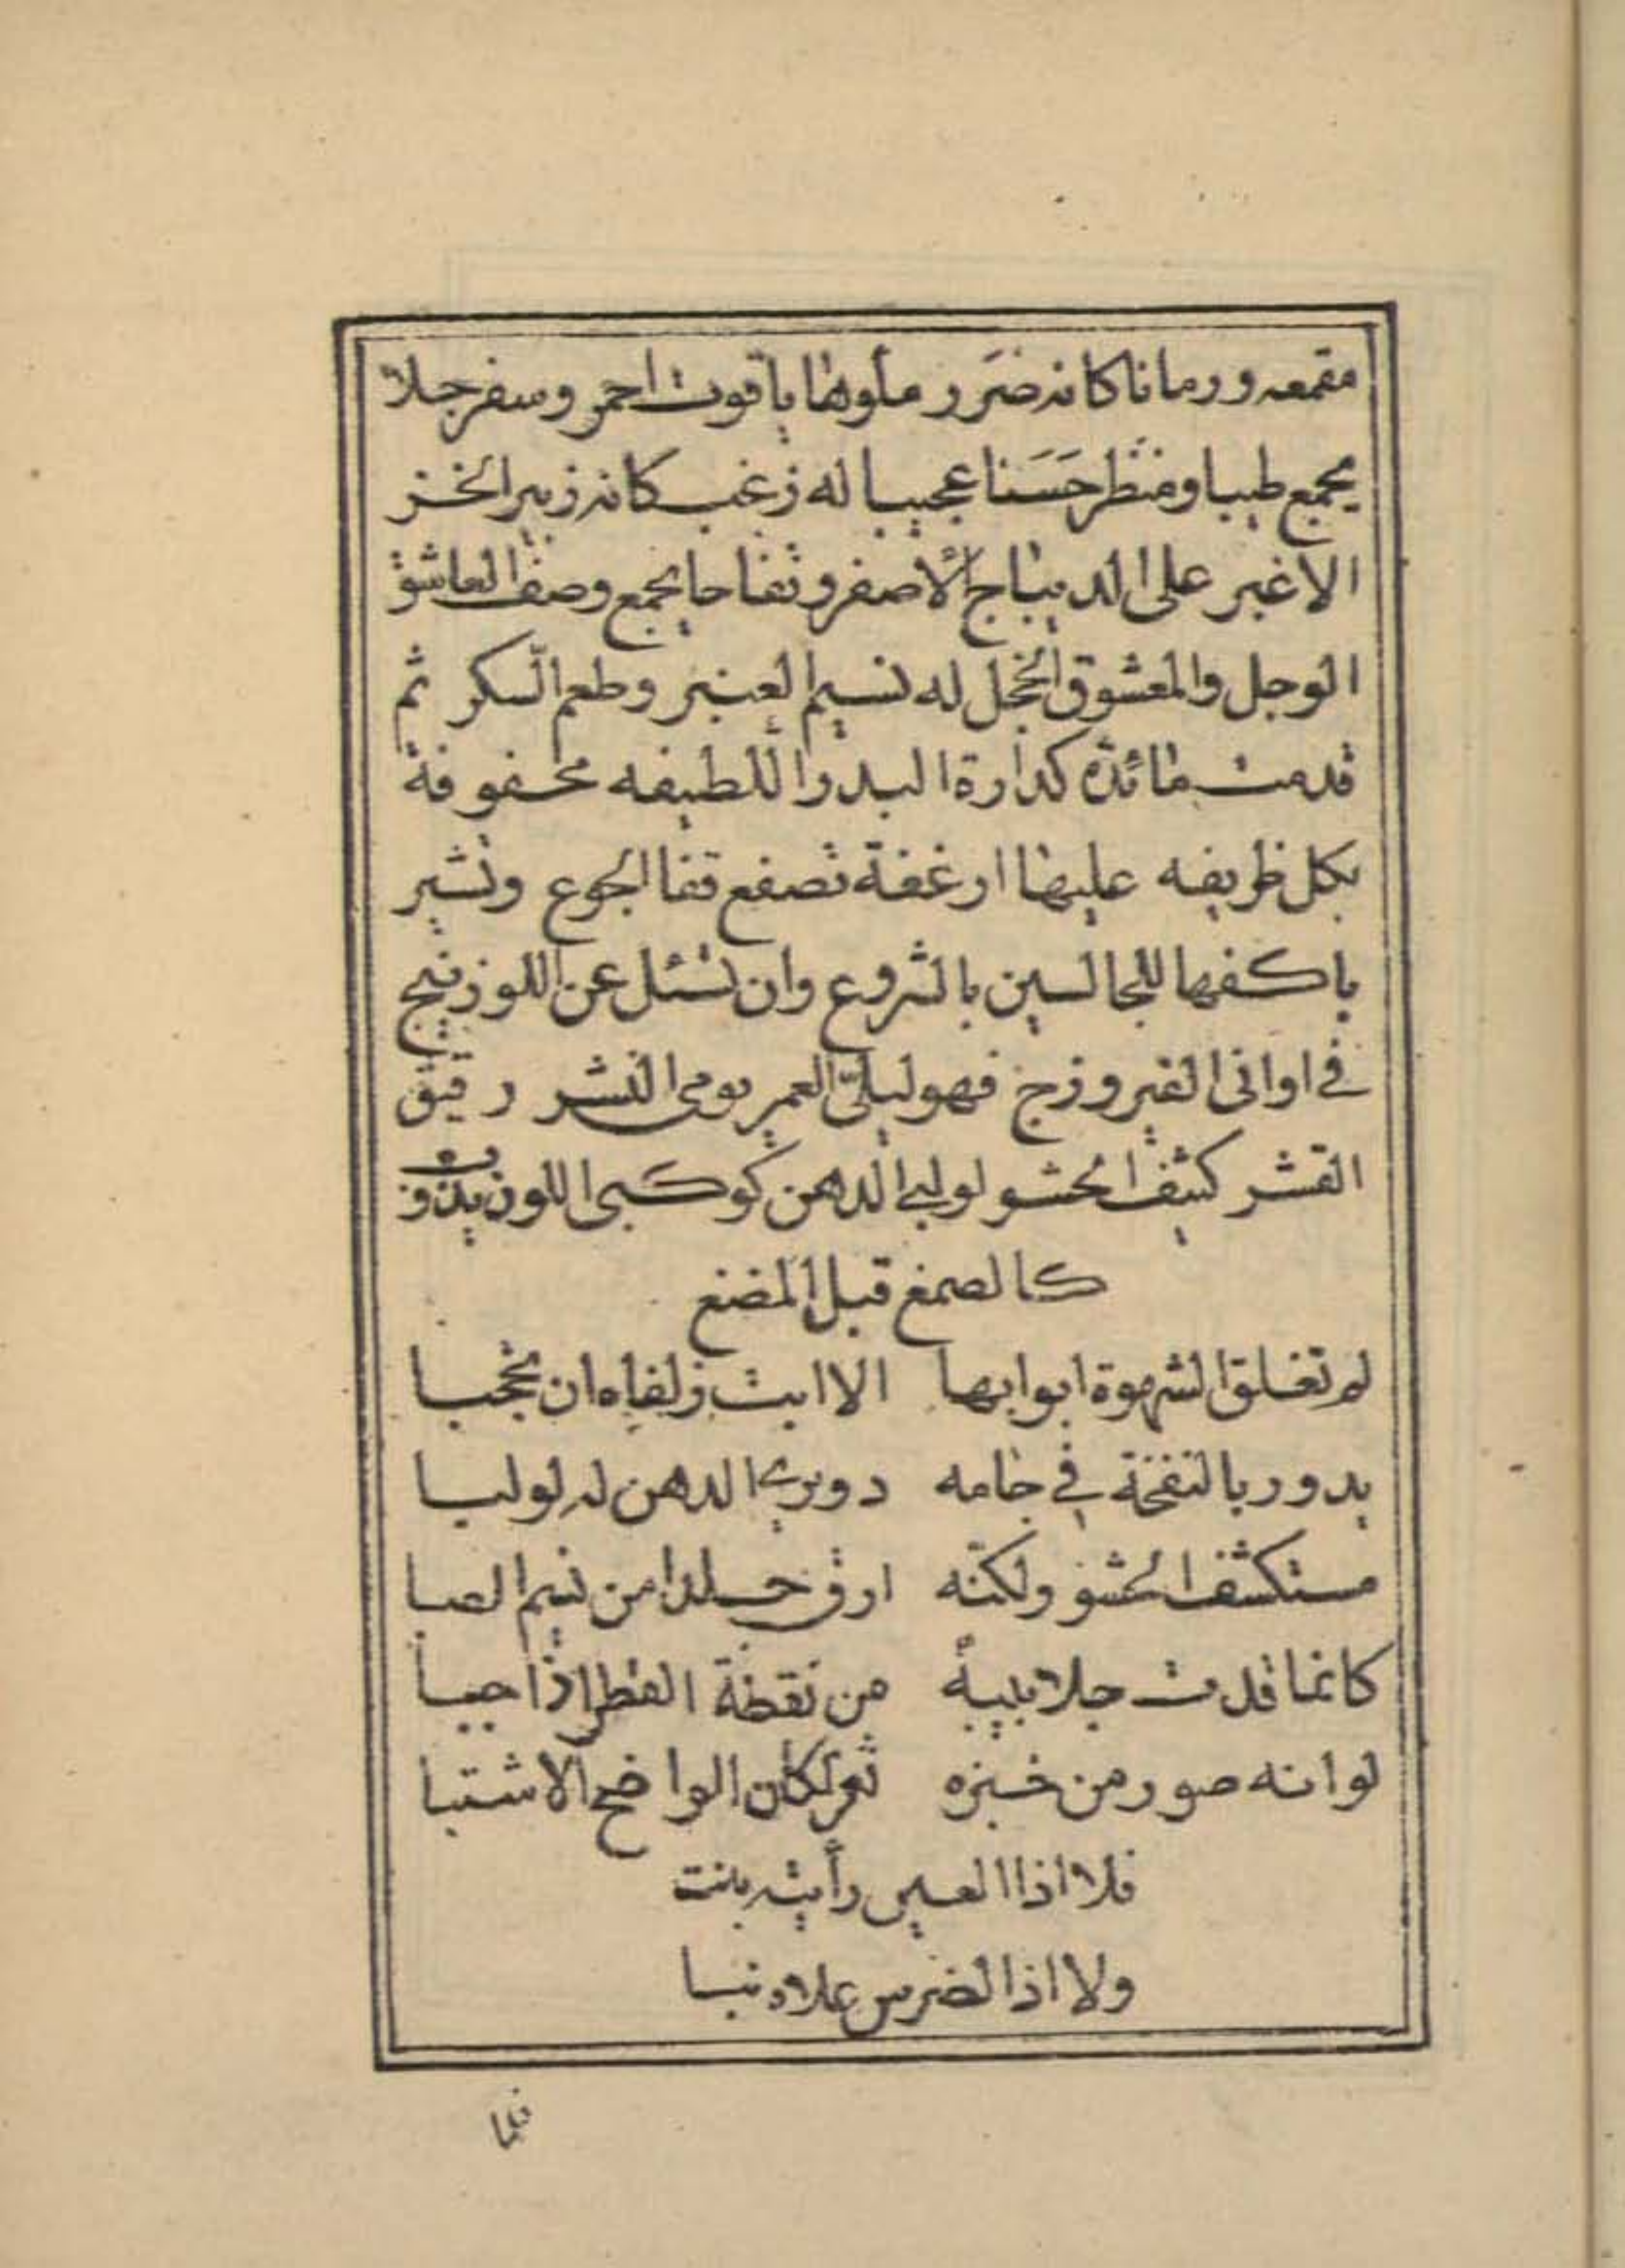 مقمعه ورمانا كانه ضرر ملوها ياقوت احمر وسفرجلا
يجمع طيبا ومنظر حسنا عجيبا له زغب كانه زبير الخز
الاغبر على الديباج الاصفر وتفاحا يجمع وصف العاشق
الوجل والمعشوق الخجل له نسيم العنبر وطعم السكر ثم
قدمت مائدة كدارة البدر اللطيفه محفوفة
بكل ظريفه عليها ارغفة تصفع قفا الجوع وتشير
باكفها للجالسين بالشروع وان تسئل عن اللوزنيج
في اواني الفيروزج فهو ليلي العمر يومي النشر رقيق
القشر كثيف الحشو لولبي الدهن كوكبي اللون يذوب
كالصمغ قبل المضغ
لم تغلق الشهوة ابوابها الا ابت زلفاه ان تحجبا
يدور بالنفخة في جامه دويرى الدهن له لولبا
مستكثف الحشو ولكنه ارق جلدا من نسيم الصبا
كانما قدت جلابيبه من نقطة القطر اذا حببا
لو انه صور من خبزه ثغر لكان الواضح الاشنبا
فلا اذا العين رأيته بنت
ولا اذا الضرس علاه نبا
فلما